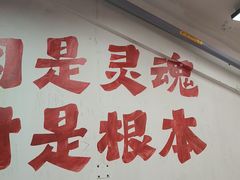 是灵魂
是根本